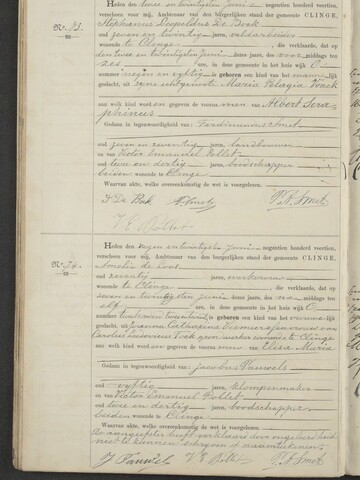 No. 73.
Heden den twee en twintigsten Juni negentien honderd veertien,
verscheen voor mij, Ambtenaar van den burgerlijken stand der gemeente CLINGE,
Stephanus Leopoldus De Bock
oud zeven en twintig jaren, veldarbeider
wonende te Clinge die verklaarde, dat op
den twee en twintigsten Juni dezes jaars, des voormiddags ten
zes ure, in deze gemeente in het huis wijk O
nummer negen en vyftig is geboren een kind van het mannelijk
geslacht, uit zyne echtgenoote Maria Pelagia
aan welk kind werd de voornamen van Albert Sera=
phinus
Gedaan in tegenwoordigheid van: Ferdinandus Smet
oud zeven en zeventig jaren, landbouwer
en Victor Emanuel Pollet
oud twee en dertig jaren, boodschapper
beiden wonende te Clinge
Waarvan akte, welke overeenkomstig de wet is voorgelezen.
P. A. Smet
V E Pollet
No. 74.
Heden den negen en twintigsten Juni negentien honderd veertien,
verscheen voor mij, Ambtenaar van den burgerlijken stand der gemeente CLINGE,
Amelia de Loos
oud zeventig jaren, werkvrouw
wonende te Clinge die verklaarde, dat op
zeven en twintigsten Juni dezes jaars, des middags ten
elf ure, in deze gemeente in het huis wijk O
nummer is geboren een kind van het vrouwelijk
geslacht, uit Catharina huisvrouw van
Carolus Ludovicus wonende te Clinge
aan welk kind de voornamen Elisa Maria
Gedaan in tegenwoordigheid van: Jacobus Pauwels
oud vyftig jaren, klompenmaker
en Victor Emanuel Pollet
oud twee en dertig jaren, boodschapper
beiden wonende te Clinge
Waarvan akte, welke overeenkomstig de wet is voorgelezen.
De aangeefster heeft verklaard door ongeleerdheid
niet te kunnen schryven of naamteekenen.
J Pauwels V. E Pollet P. A. Smet